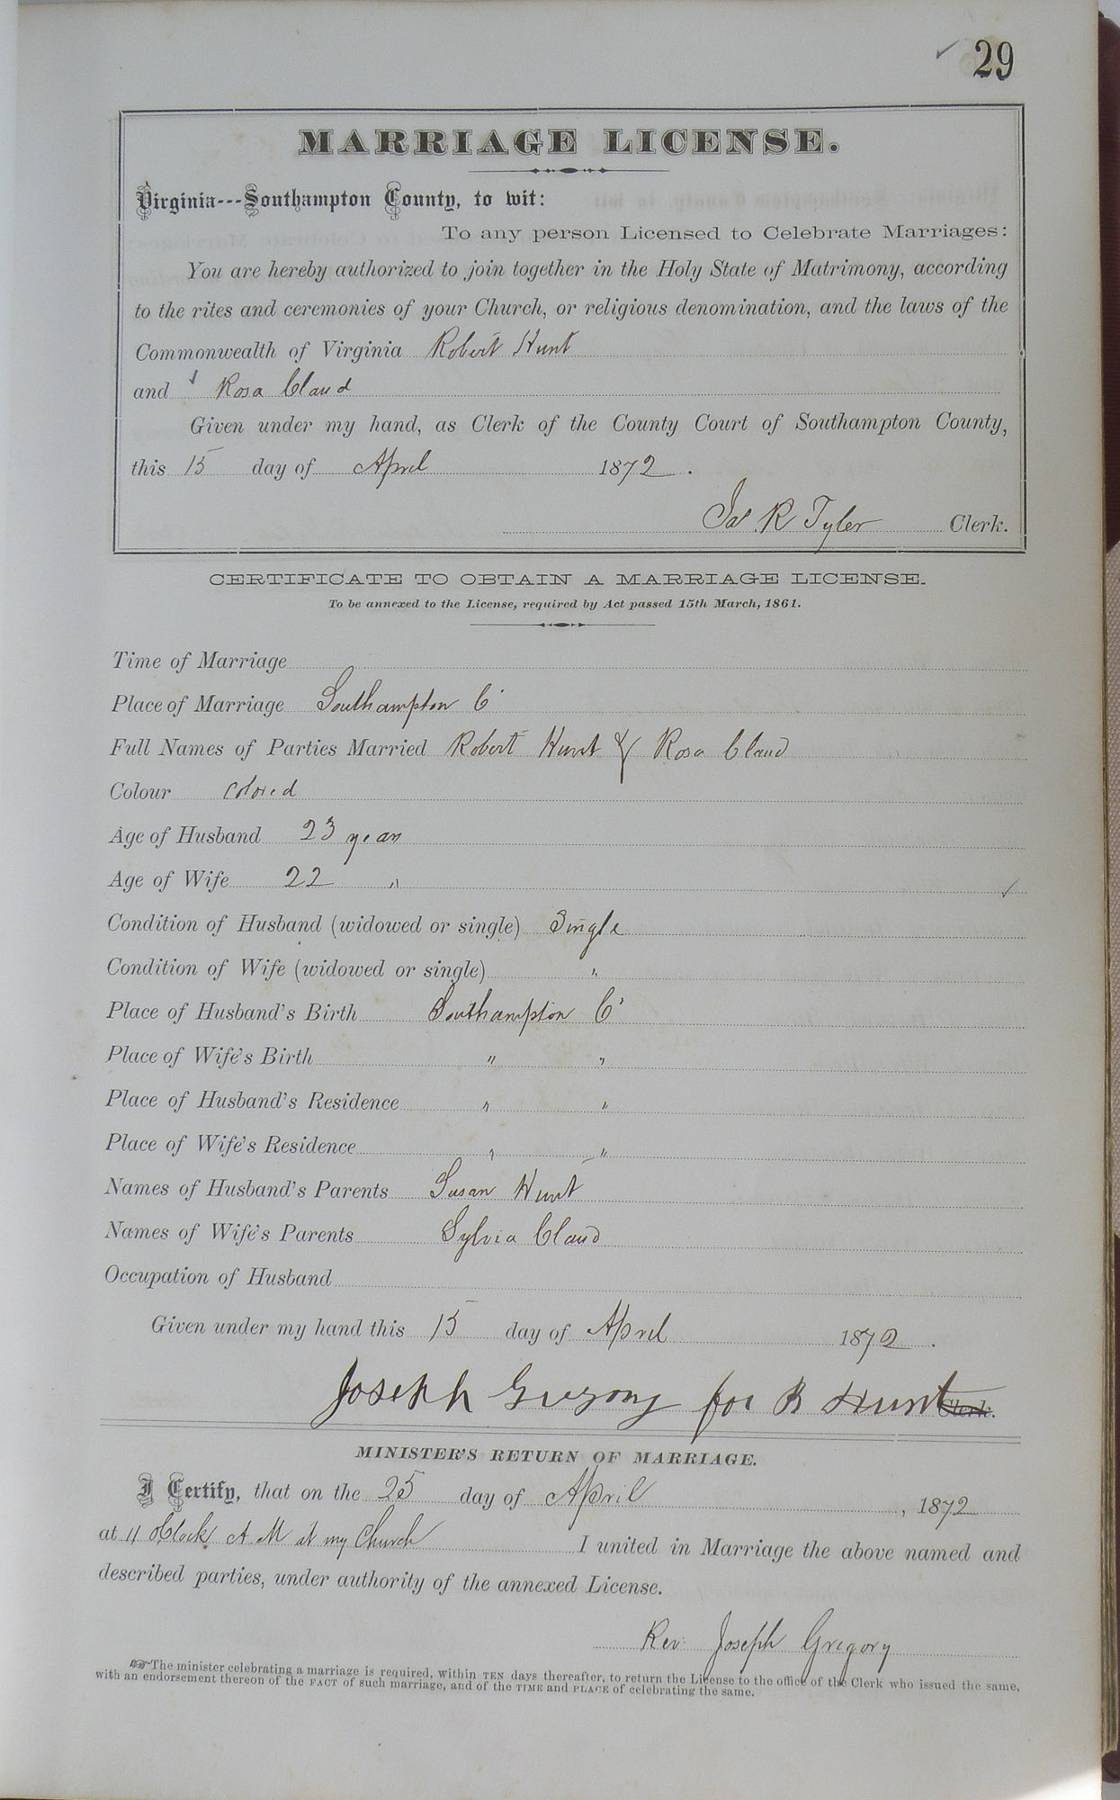 29
MARRIAGE LICENSE.
Virginia---Southampton County, to wit:
To any person Licensed to Celebrate Marriages:
You are hereby authorized to join together in the Holy State of Matrimony, according
to the rites and ceremonies of your Church, or religious denomination, and the laws of the
Commonwealth of Virginia Robert Hunt
and Rosa Claud
Given under my hand, as Clerk of the County Court of Southampton County,
this 15 day of April 1872.
Jas R Tyler Clerk.
CERTIFICATE TO OBTAIN A MARRIAGE LICENSE.
To be annexed to the License, required by Act passed 15th March, 1861.
Time of Marriage
Place of Marriage Southampton Co
Full Names of Parties Married Robert Hunt & Rosa Claud
Colour Colored
Age of Husband 23 years
Age of Wife 22 "
Condition of Husband (widowed or single) Single
Condition of Wife (widowed or single) "
Place of Husband's Birth Southampton Co
Place of Wife's Birth " "
Place of Husband's Residence " "
Place of Wife's Residence " "
Names of Husband's Parents Susan Hunt
Names of Wife's Parents Sylvia Claud
Occupation of Husband
Given under my hand this 15 day of April 1872.
Joseph Gregory for R Hunt Clerk.
MINISTER'S RETURN OF MARRIAGE.
I Certify, that on the 25 day of April, 1872
at 11 Oclock A M at my Church I united in Marriage the above named and
described parties, under authority of the annexed License.
Rev Joseph Gregory
The minister celebrating a marriage is required, within TEN days thereafter, to return the License to the office of the Clerk who issued the same,
with an endorsement thereon of the FACT of such marriage, and of the TIME and PLACE of celebrating the same.